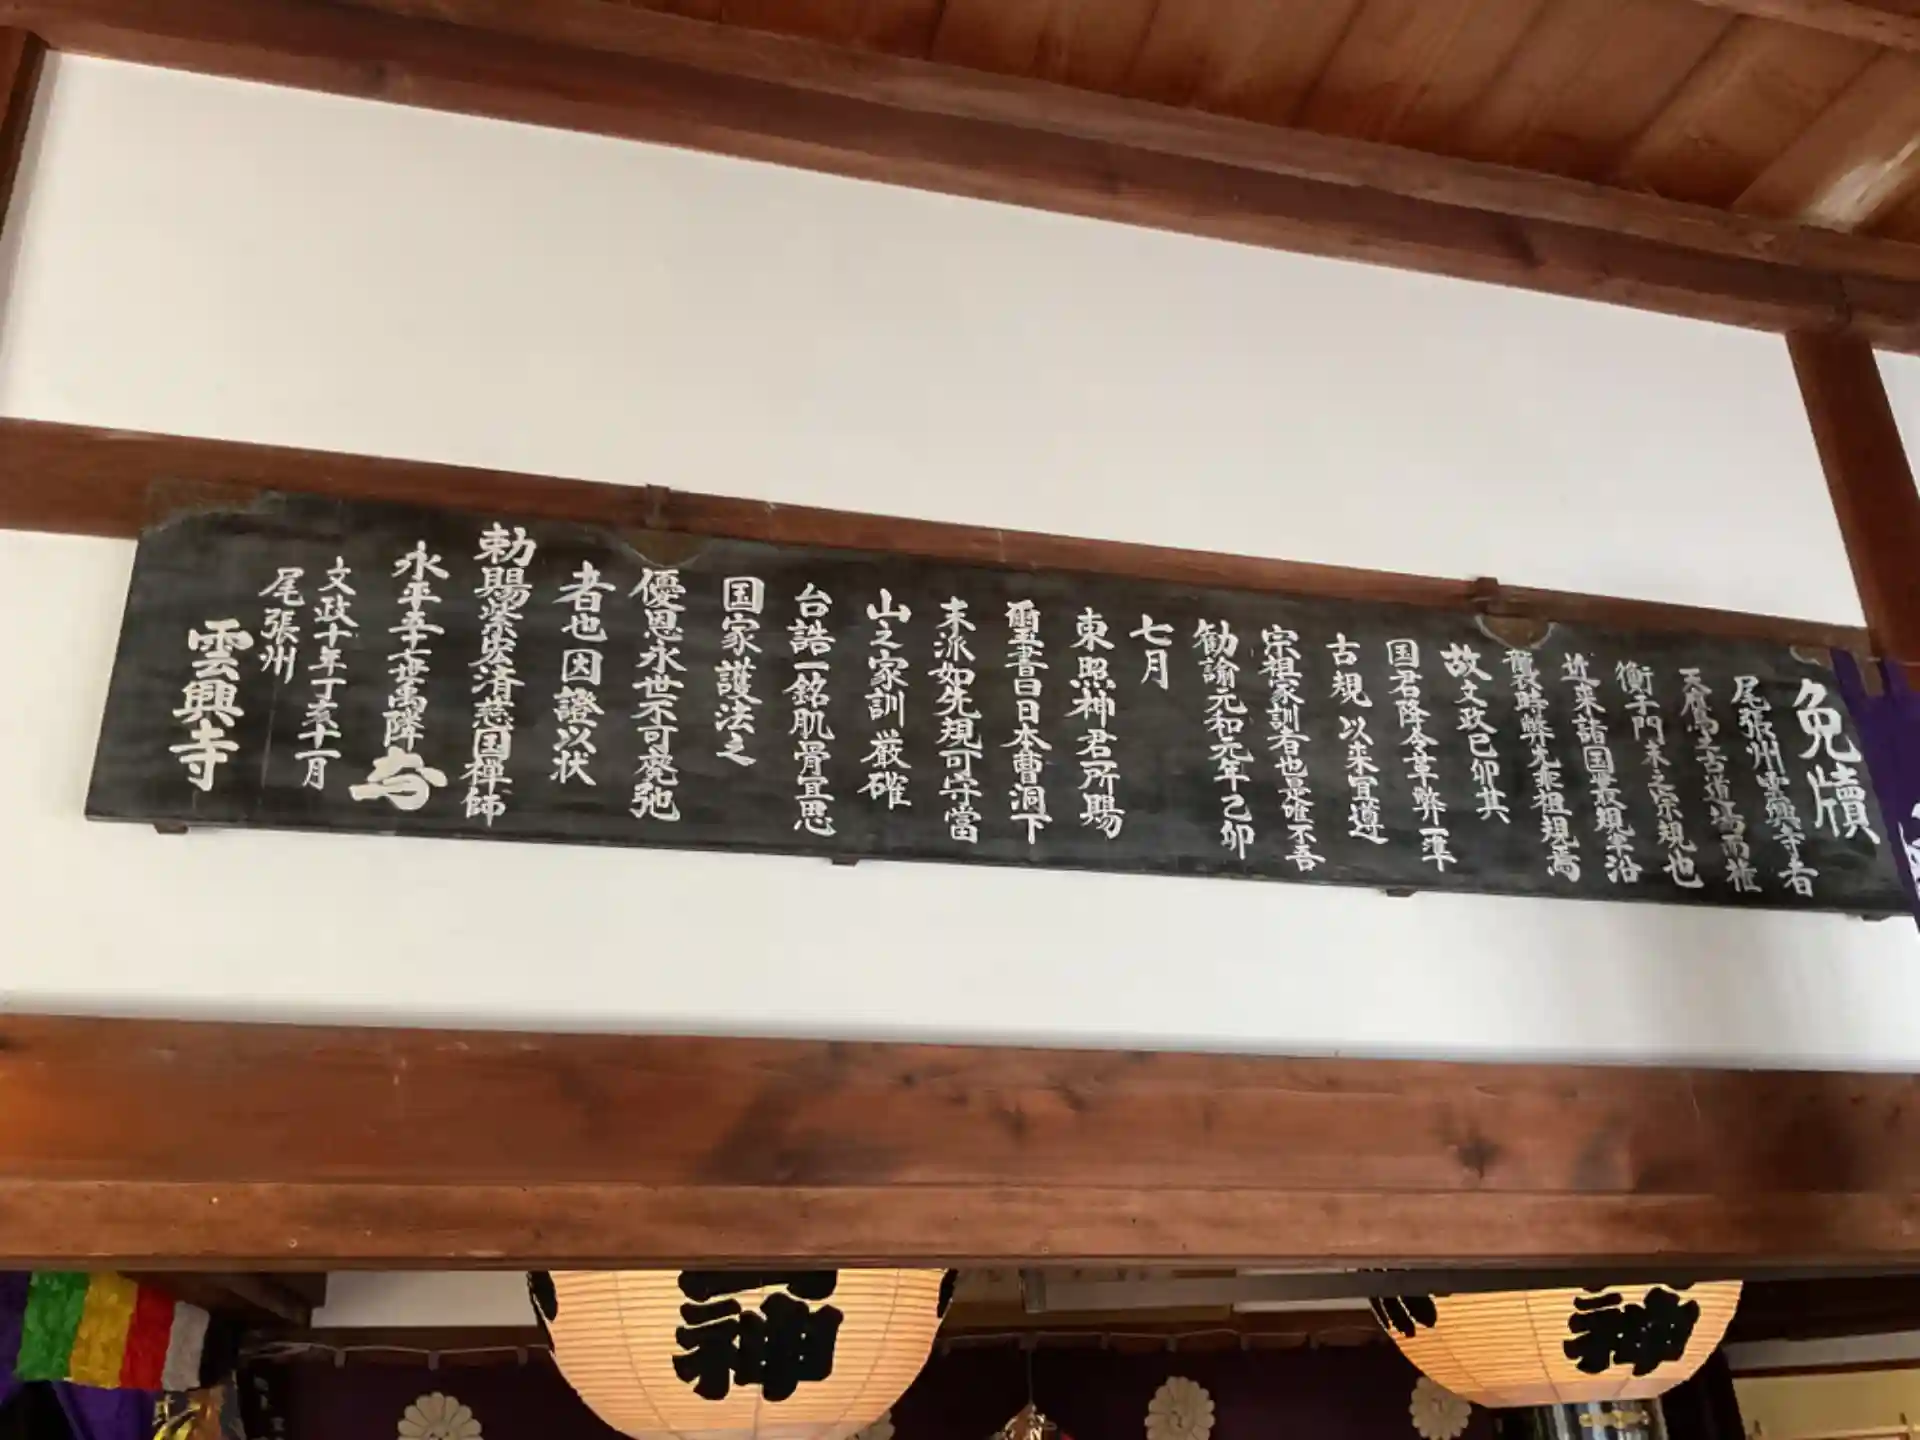 免牘
尾張州雲興寺者
天鷹之古道場而権
衡于門末之宗規也
近来諸国叢規率沿
襲時弊先乖祖規焉
故文政己卯其
国君降令革弊一準
古規以来冝遵
宗祖家訓者也是確不吾
勧諭元和元年乙卯
七月
東照神君所賜
璽書曰日本曹洞下
末派如先規可守當
山之家訓厳確
台誥一銘肌骨宜思
国家護法之
優恩永世不可廃弛
者也因證以状
勅賜紫宏済慈国禅師
永平五十七世禹隆
文政十年丁亥十一月
尾張州
雲興寺
神
神